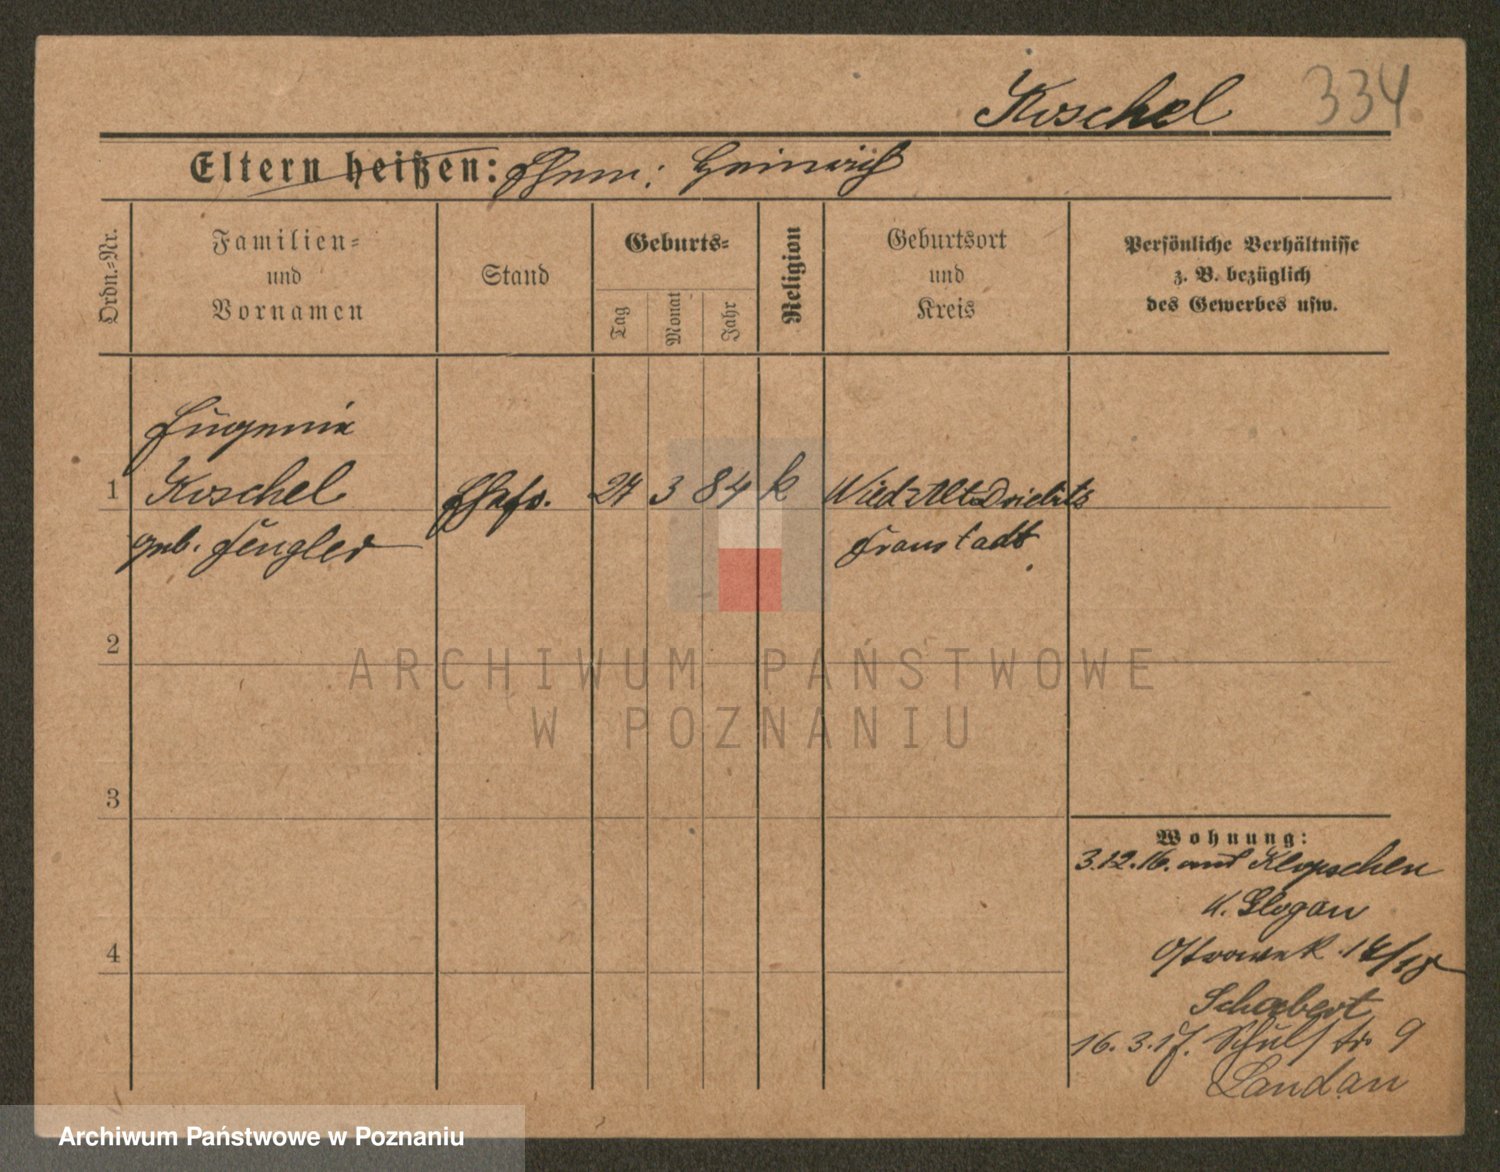 Koschel 334.
Eltern heißen: Ehem: Heinrich
Ordn.-Nr.
Familien-
und
Vornamen
Stand
Geburts-
Tag
Monat
Jahr
Religion
Geburtsort
und
Kreis
Persönliche Verhältnisse
z. B. bezüglich
des Gewerbes usw.
Eugenie
1 Koschel Ehefr. 24 3 84 k Nied. Alt Driebitz
geb. Fengler Fraustadt.
2
ARCHIWUM PAŃSTWOWE
W POZNANIU
3
4
Wohnung:
3.12.16. aus Klopschen
K. Glogau
Ostrowek 17/18
Schubert
16.3.17. Schulstr. 9
Landau
Archiwum Państwowe w Poznaniu